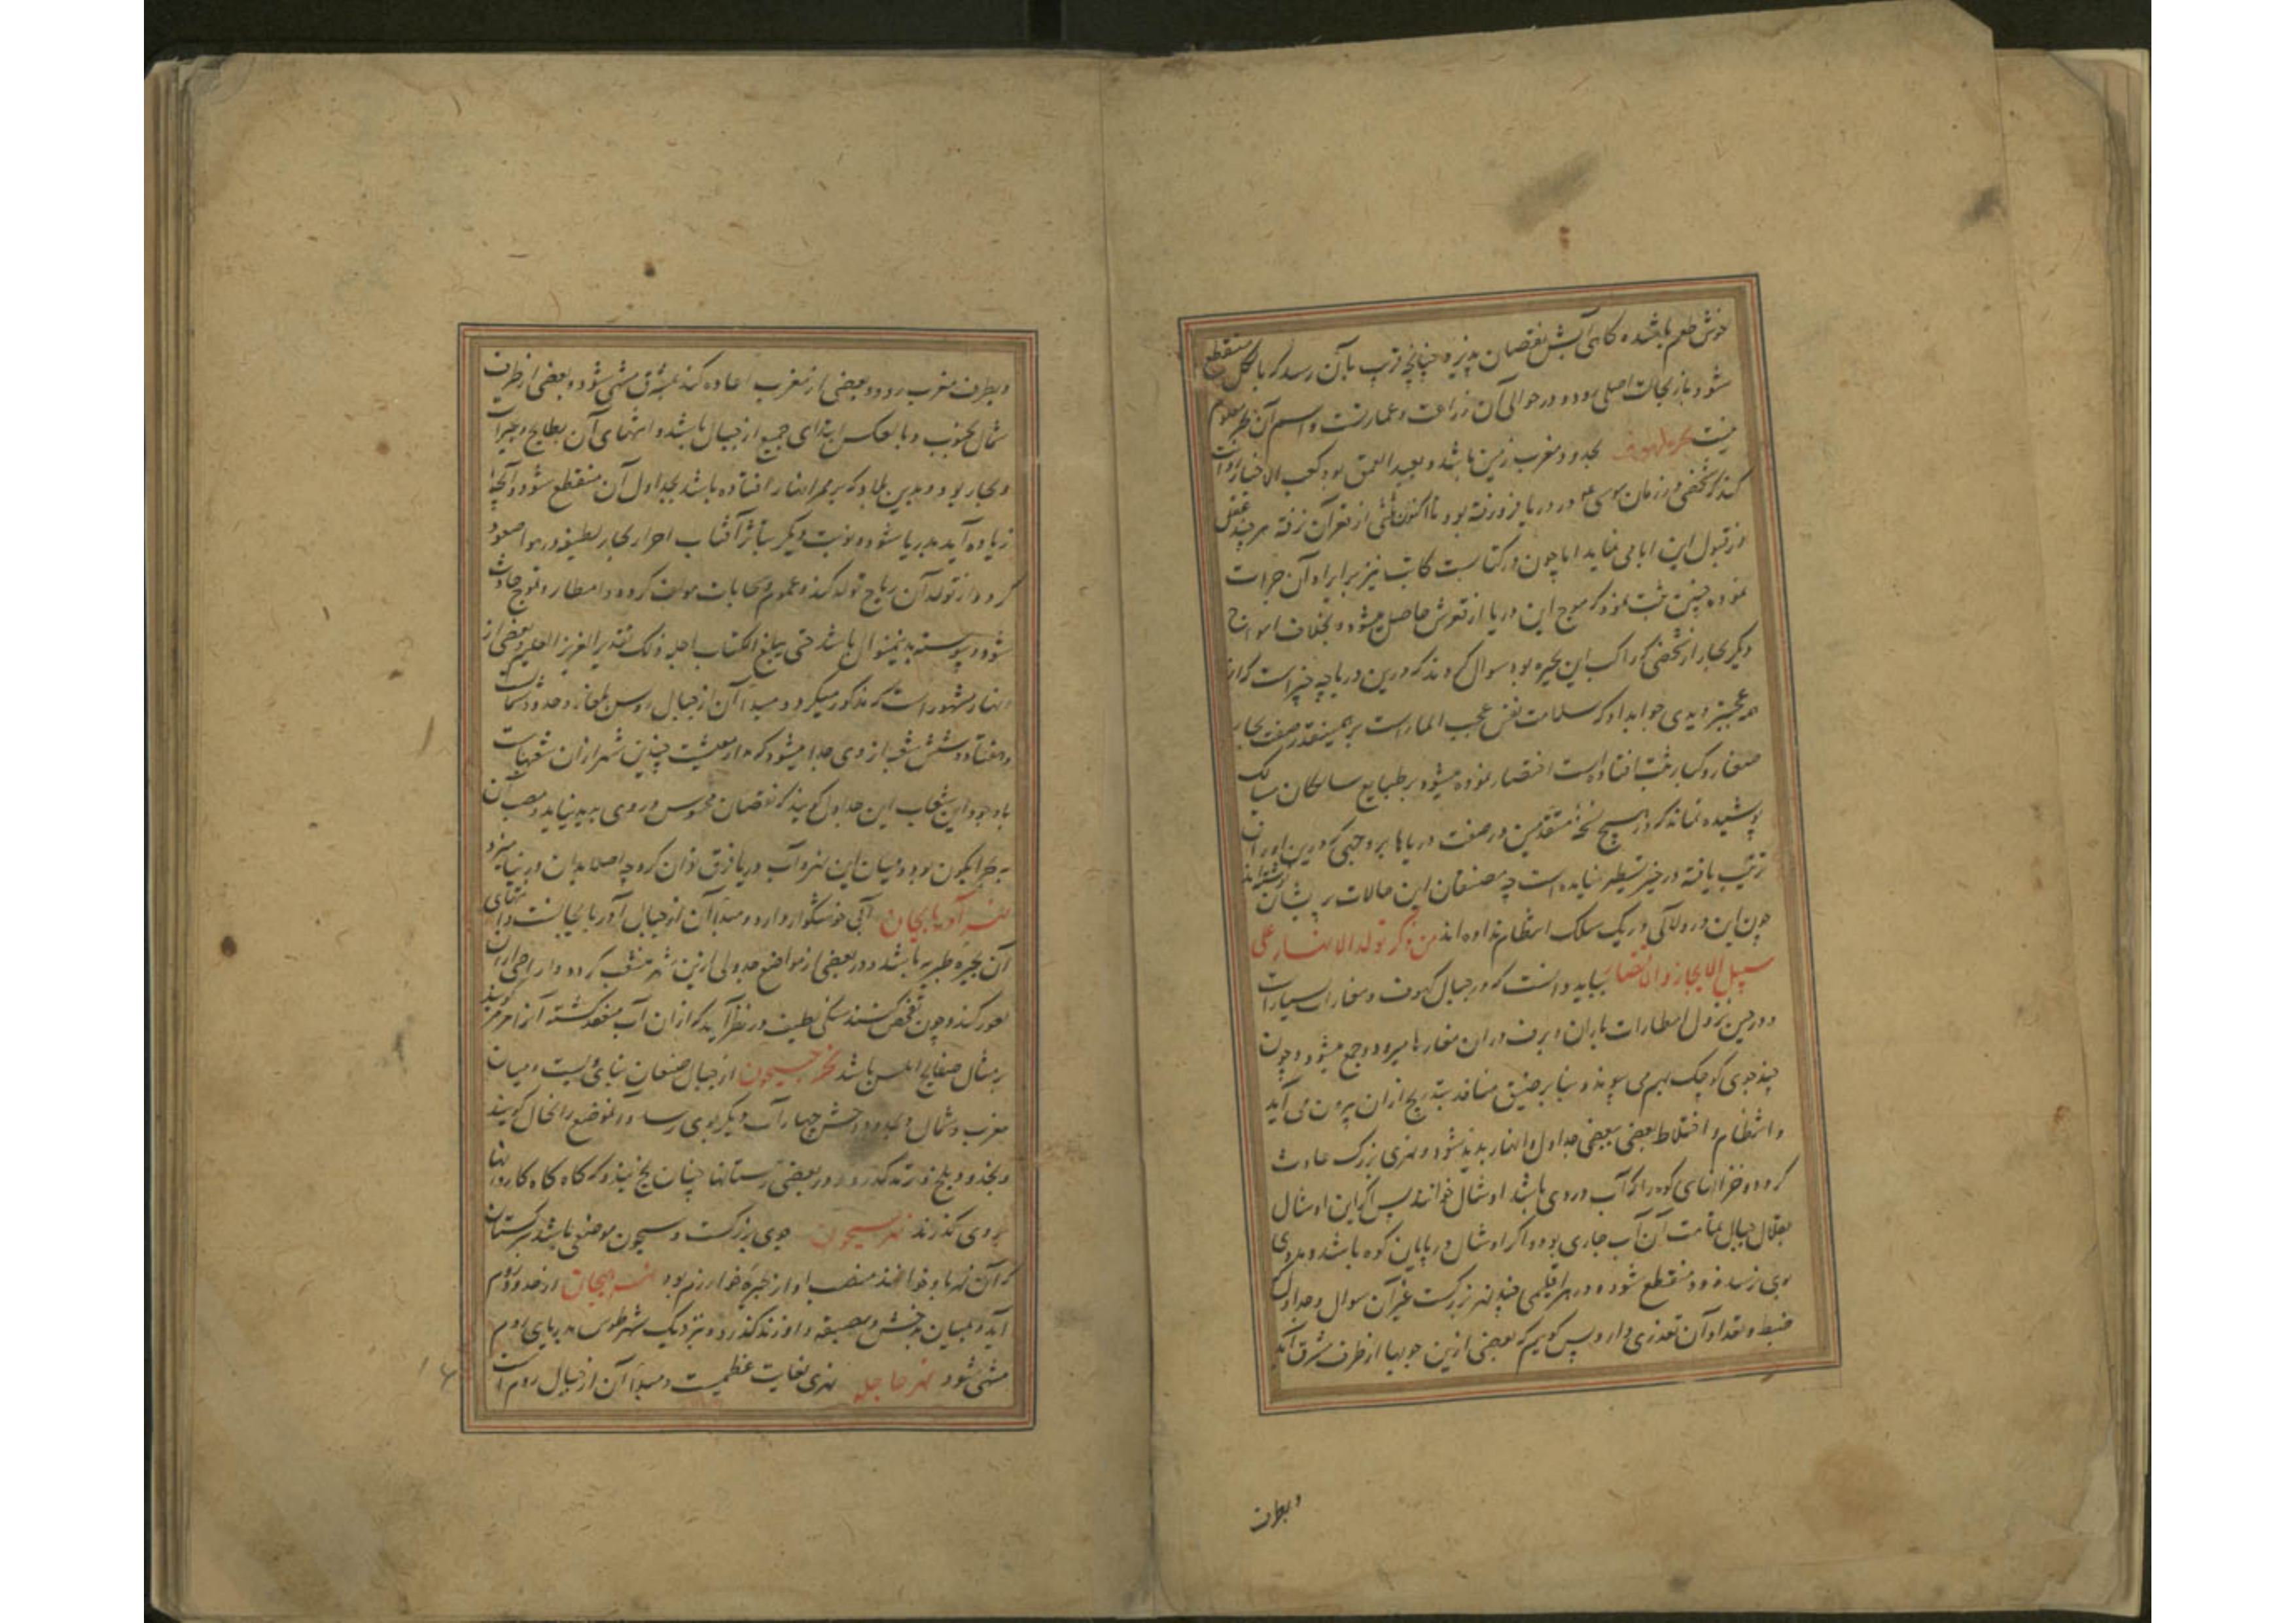 خوش طعم باشد و گاهی آبش نقصان پذیرد چنانچه قریب بآن رسد که بالکل منقطع
شود و باز بحالت اصلی رود و در حوالی آن زراعت و عمارتست و اسم آن ظهر معلوم
نیست بحر بحدود مغرب زمین باشد و بعید العمق بود کعب الاخبار روایت
کند که شخصی در زمان موسی در دریا فرو رفته بود تا اکنون از قعر آن نرفته هر چند عقل
از قبول این ابا می نماید اما چون در کتابست کاتب نیز بر ایراد آن جرات
نموده چنین ثبت نمود که موج این دریا از قعرش حاصل میشود و بخلاف امواج
دیگر بحار از شخصی که راکب این بحیره بود سوال کردند که درین دریا چه چیز است که از
همه عجبتر دیدی جواب داد که سلامت نفس عجب الماراست بر همینقدر صفت بحار
صغار و کبار مثبت افتاده است اختصار نموده میشود بر طبایع سالکان مسالک
پوشیده نماند که در هیچ نسخه متقدمین در صفت دریاها بر وجهی که درین اوراق
ترتیب یافته در حیز تسطیر نیامده است چه مصنفان این حالات پریشان نوشته اند
چون این درر و لآلی در یک سلک انتظام نداده اند من ذکر تولد الانهار علی
سبیل الایجاز و الاختصار بباید دانست که در جبال کهوف و مغارات بسیارات
و در حین نزول امطارات باران و برف در ان مغارها میرود و جمع میشود و چون
چند جوی کوچک بهم می پیوندد و بنا بر ضیق منافذ بتدریج از ان بیرون می آید
و انتظام و اختلاط بعضی ببعضی جداول و انهار پدید شود و نهری بزرگ حادث
گردد و خزانهای کوه را که آب در وی باشد اوشال خوانند پس اگر این اوشال
بقلال جبال آن آب جاری بود و اگر اوشال در پایان کوه باشد و مددی
بوی نرسد زود منقطع شود و در هر اقلیمی چند نهر بزرگست غیر آن سوال و جداول که
ضبط و تعداد آن تعذری دارد پس گویم که بعضی ازین جویها از طرف مشرق آید
و بطرف
و بطرف مغرب رود و بعضی از مغرب اعاده کند بمشرق منتهی شود و بعضی از طرف
شمال بجنوب و بالعکس ابتدای جمیع از جبال باشد و انتهای آن بطایح و بحیرات
و بحار بود و بدین بلاد که بر ممر انهار افتاده باشد بجداول آن منقطع شود و آنچه
زیاده آید بدریا شود و نوبت دیگر بتأثر آفتاب اجزای بحار لطیف در هوا صعود
گردد از تولد آن ریاح تولد کند و غموم و سحابات مولف گردد و امطار و ثلوج حادث
شود و پیوسته بدینمنوال باشد حتی یبلغ الکتاب اجله ذلک تقدیر العزیز العلیم و بعضی از
انهار مشهور است که مذکور میگردد مبدأ آن از جبال روس و بلغار و حدود شمالست
و هفتاد و شش شعبه از وی جدا میشود که مدار معیشت چندین شهر از ان شعبهاست
با وجود این شعاب این جداول گویند که نقصان محسوس در وی پدید نیاید و مصب آن
بحر آبگون بود و میان این نهر و آب دریا فرق توان کرد چه اصلا بدان در نیامیزد
نهر آذربایجان آبی خوشگوار دارد و مبدأ آن از جبال آذربایجانست و انتهای
آن بحیره طبریه باشد و در بعضی از مواضع جدولی ازین نهر منشعب گردد و از اجزاء ان
عبور کند و چون تفحص کنند سنگی لطیف در نظر آید که از ان آب منعقد گشته آنرا مرمر گویند
بر مثال صفایح املس باشد نهر جیحون از جبال صنعان نبایدویست و میان
مغرب و شمال و بحدود وخش چهار آب دیگر بوی رسد و آنموضع را نخال گویند
و بجند و بلخ و ترمد گذرد و در بعضی زمستانها چنان یخ بندد که گاه گاه کاروانها
بر وی گذرند نهر سیحون جوی بزرگست و سیحون موضعی باشد ترکستان
که آن نهر باو خوانند مصب او از بحیره خوارزم بود نهر جیحان از حدود روم
آید و بمیان و مصیصه و اوزند گذرد و نزدیک شهر طوس بدریای روم
منتهی شود نهر حاجله نهری بغایت عظیمست و مبدأ آن از جبال روم است